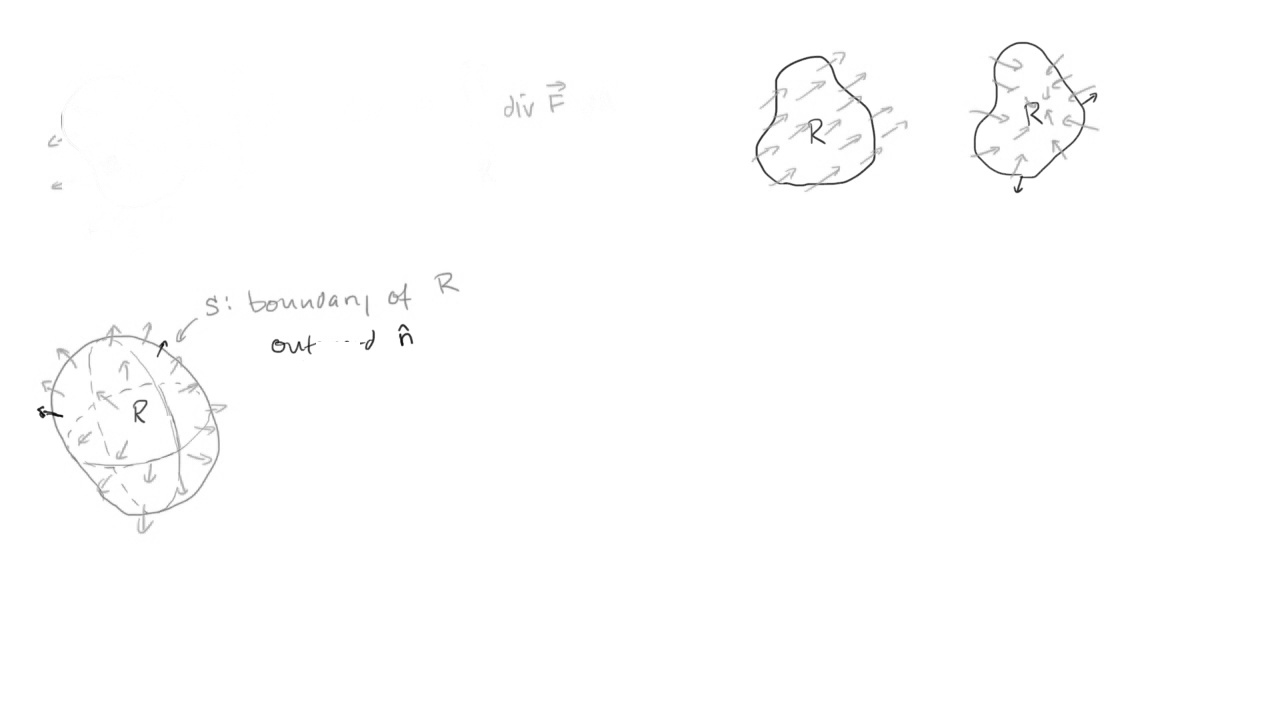 div F⃗
R
R
S: boundary of R
n̂
R